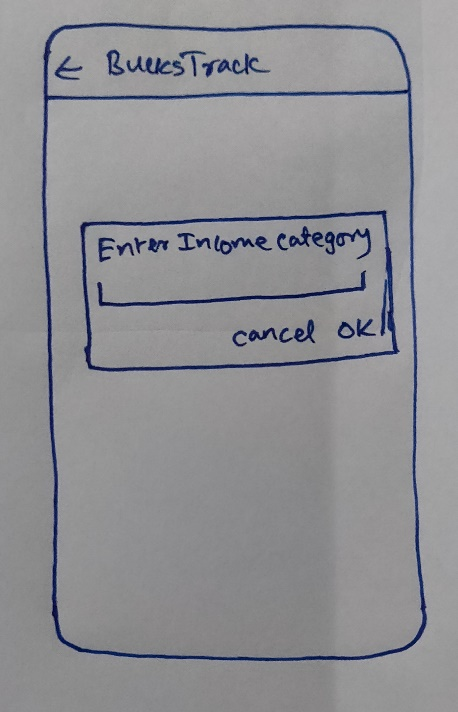 ← BucksTrack
Enter Income category
cancel OK